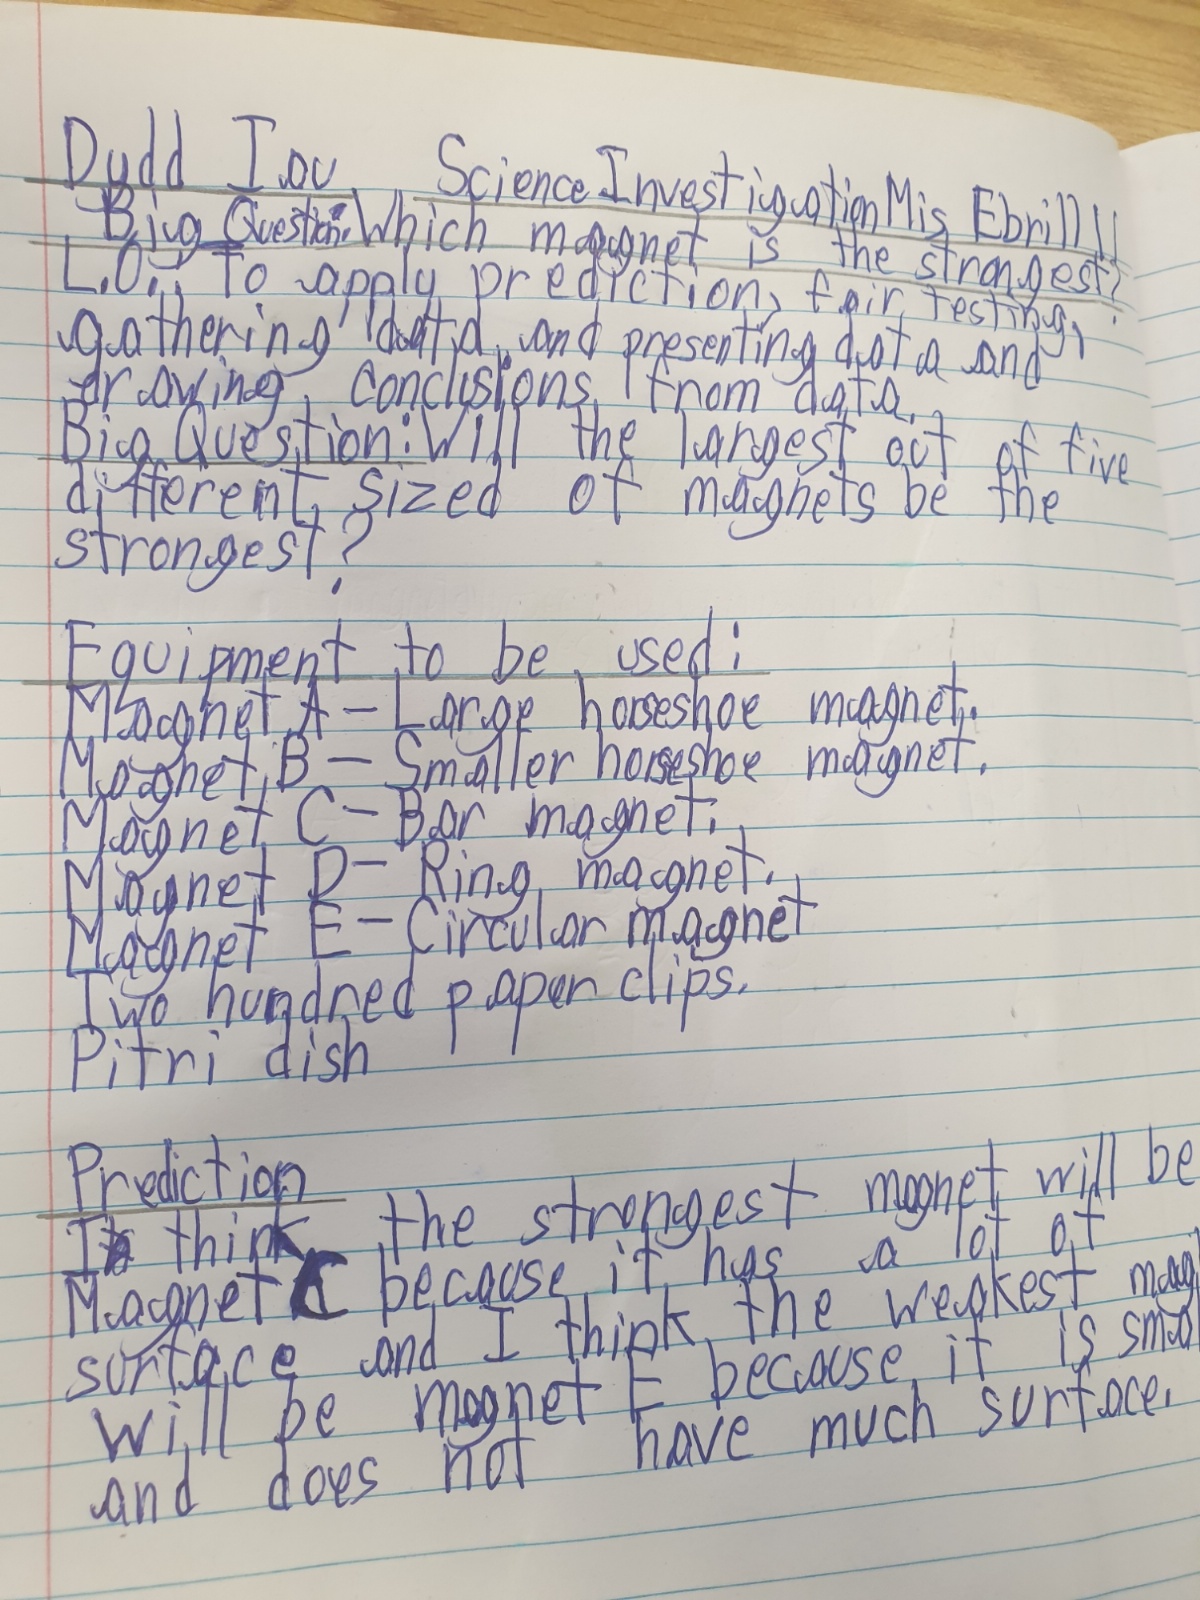 Dydd Iau Science Investigation Mis Ebrill 11
Big Question: Which magnet is the strongest?
L.O.: To apply prediction, fair testing,
gathering data, and presenting data and
drawing conclusions from data.
Big Question: Will the largest out of five
different sized of magnets be the
strongest?
Equipment to be used:
Magnet A - Large horseshoe magnet.
Magnet B - Smaller horseshoe magnet.
Magnet C - Bar magnet.
Magnet D - Ring magnet.
Magnet E - Circular magnet
Two hundred paper clips.
Pitri dish
Prediction
I think the strongest magnet will be
Magnet C because it has a lot of
surface and I think the weakest mag
will be magnet E because it is smal
and does not have much surface.